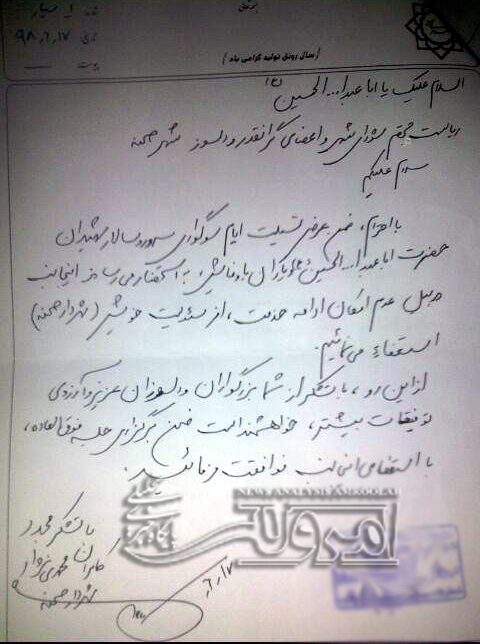 ۹۸,۶,۱۷
(سال رونق تولید گرامی باد)
السلام علیک یا ابا عبدا... الحسین (ع)
ریاست محترم شورای شهر و اعضای گرانقدر و دلسوز شهر صحنه
سلام علیکم
با احترام، ضمن عرض تسلیت ایام سوگواری سرور و سالار شهیدان
حضرت ابا عبدا... الحسین و یاران با وفایش، به استحضار می رساند اینجانب
بدلیل عدم امکان ادامه خدمت، از مسئولیت خویش (شهردار صحنه)
استعفاء می نمائیم.
از این رو، با تشکر از شما بزرگواران و دلسوزان عزیز و آرزوی
توفیقات بیشتر، خواهشمند است ضمن برگزاری جلسه فوق العاده،
با استعفای اینجانب موافقت فرمائید.
با تشکر مجدد
کامران محمدی نژاد
شهردار صحنه
۶,۱۷
NEWS ANALYSIS
امروله